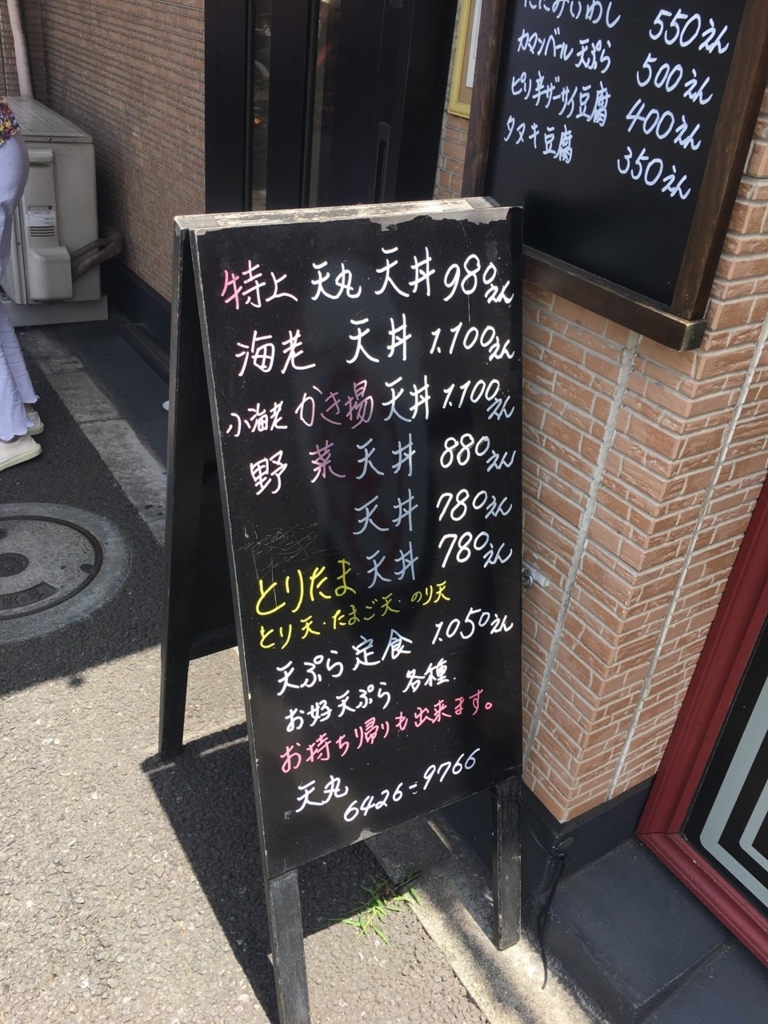 たたみいわし 550えん
カマンベール天ぷら 500えん
ピリ辛ザーサイ豆腐 400えん
タヌキ豆腐 350えん
特上 天丸 天丼 980えん
海老 天丼 1,100えん
小海老 かき揚 天丼 1,100えん
野菜 天丼 880えん
天丼 780えん
とりたま 天丼 780えん
とり天・たまご天・のり天
天ぷら定食 1,050えん
お好天ぷら 各種.
お持ち帰りも出来ます。
天丸 6426-9766